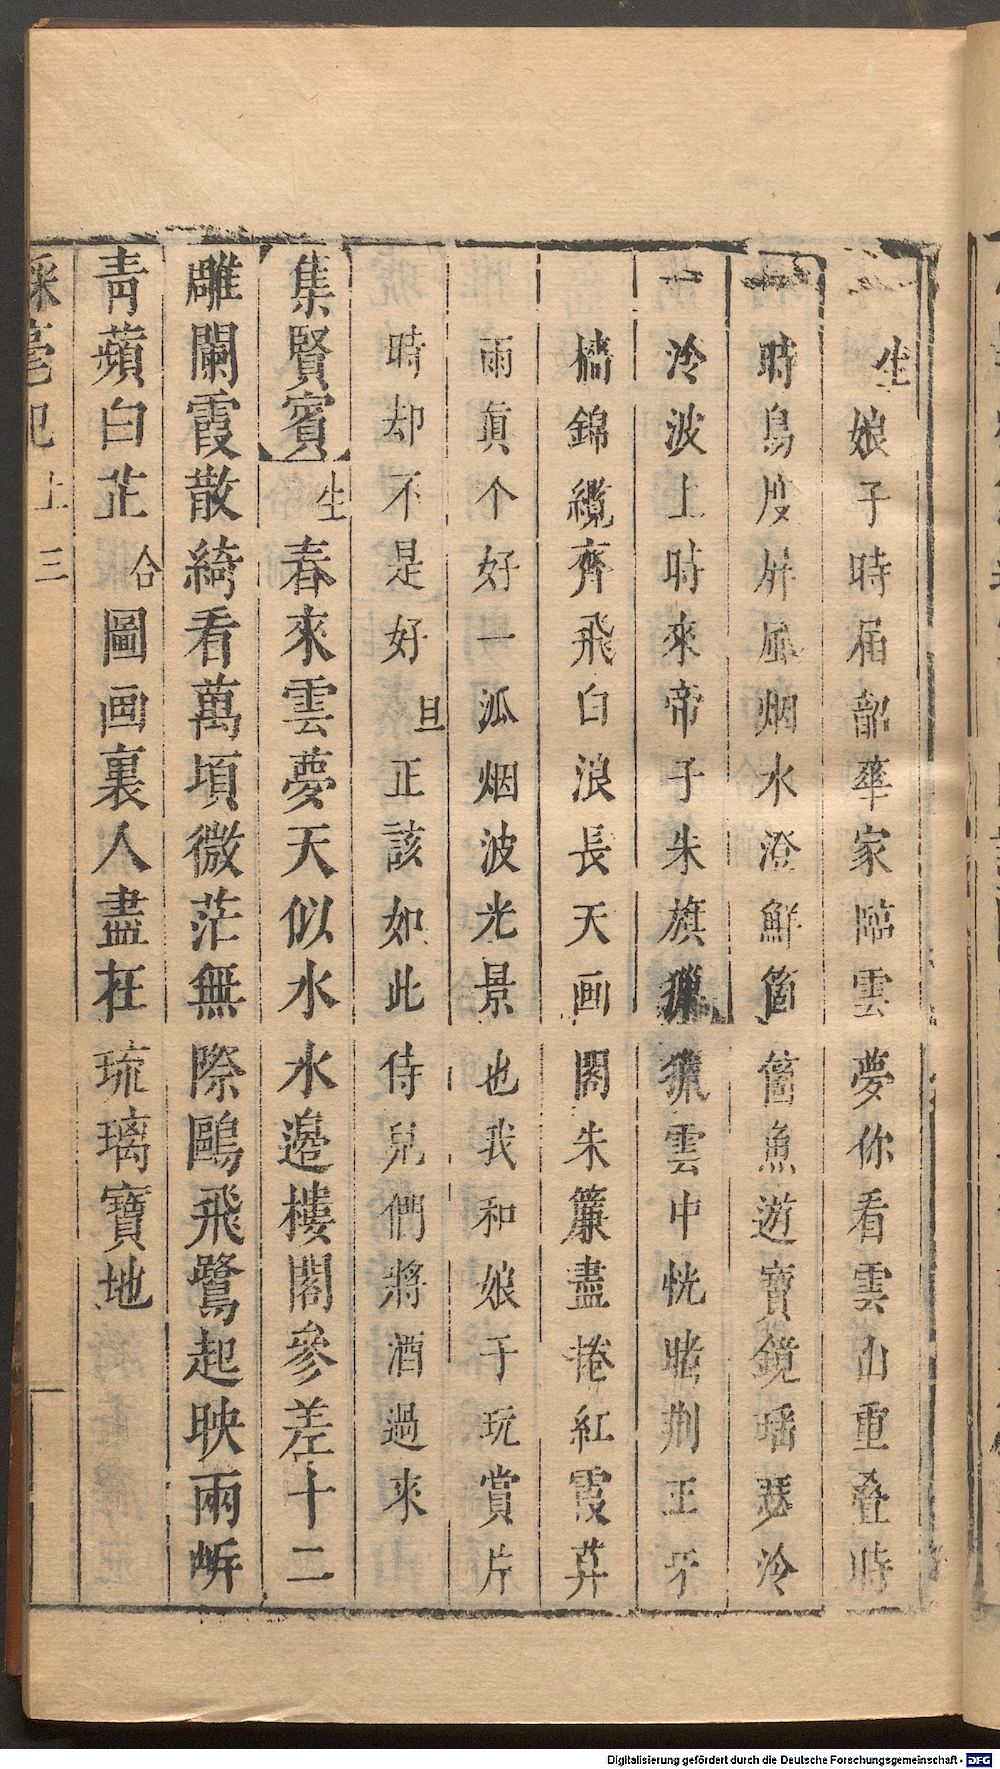 生娘子時届韶華家臨雲夢你看雲山重叠時
時鳥度屏風烟水澄鮮箇箇魚遊寶鏡瑤瑟泠
泠波上時來帝子朱旗獵獵雲中恍睹荆王牙
檣錦纜齊飛白浪長天画閣朱簾盡捲紅霞莽
雨真个好一派烟波光景也我和娘子玩賞片
時却不是好旦正該如此侍兒們將酒過來
集賢賓生春來雲夢天似水水邉樓閣參差十二
雕闌霞散綺看萬頃微茫無際鷗飛鷺起映兩岍
青蘋白芷合圖画裏人盡在琉璃寶地
綵毫記上三
Digitalisierung gefördert durch die Deutsche Forschungsgemeinschaft - DFG